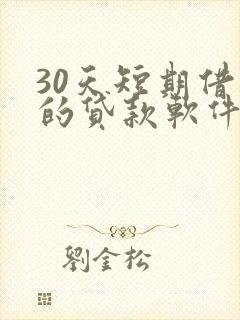 30天短期借
的贷款軟件
劉金松